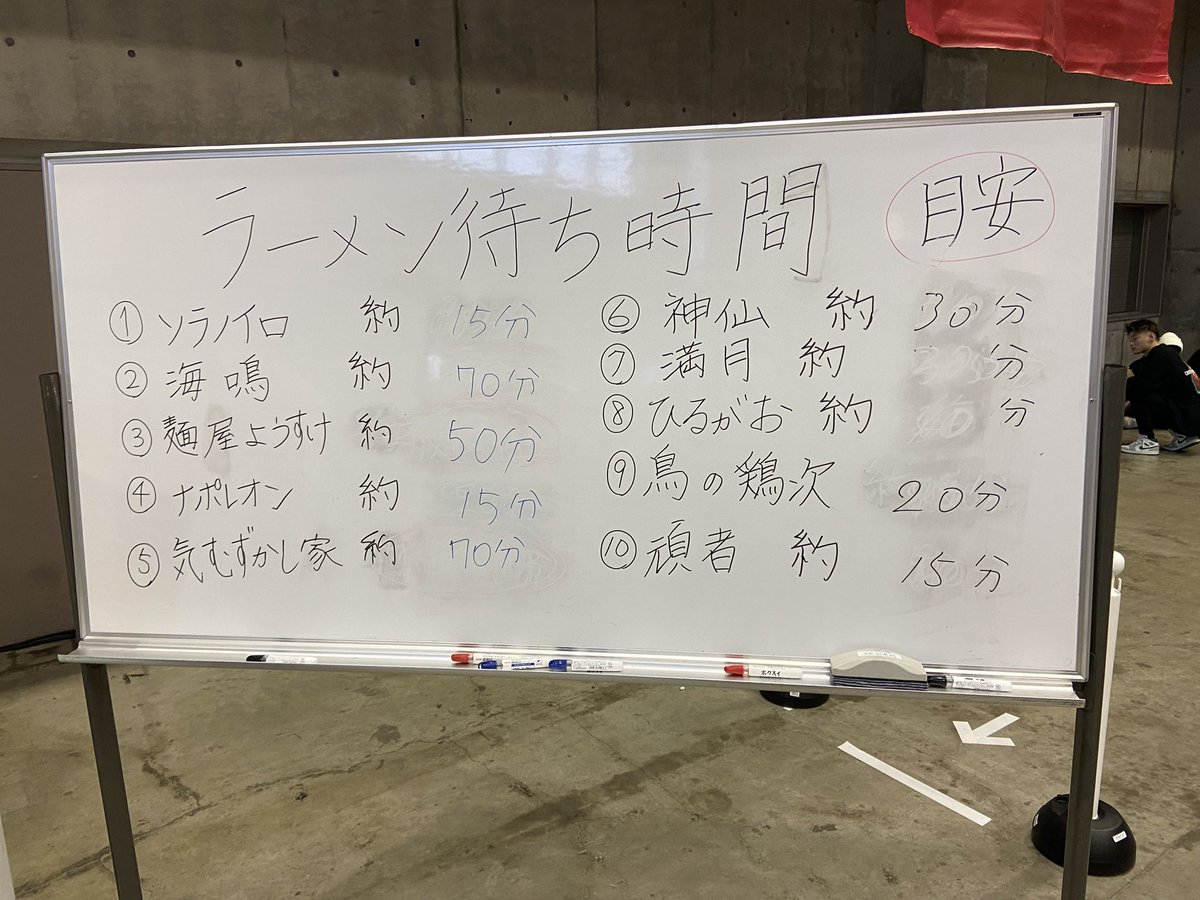 ラーメン待ち時間 目安
① ソラノイロ 約 15分
② 海鳴 約 70分
③ 麺屋ようすけ 約 50分
④ ナポレオン 約 15分
⑤ 気むずかし家 約 70分
⑥ 神仙 約 30分
⑦ 満月 約 分
⑧ ひるがお 約 分
⑨ 鳥の鶏次 20分
⑩ 頑者 約 15分